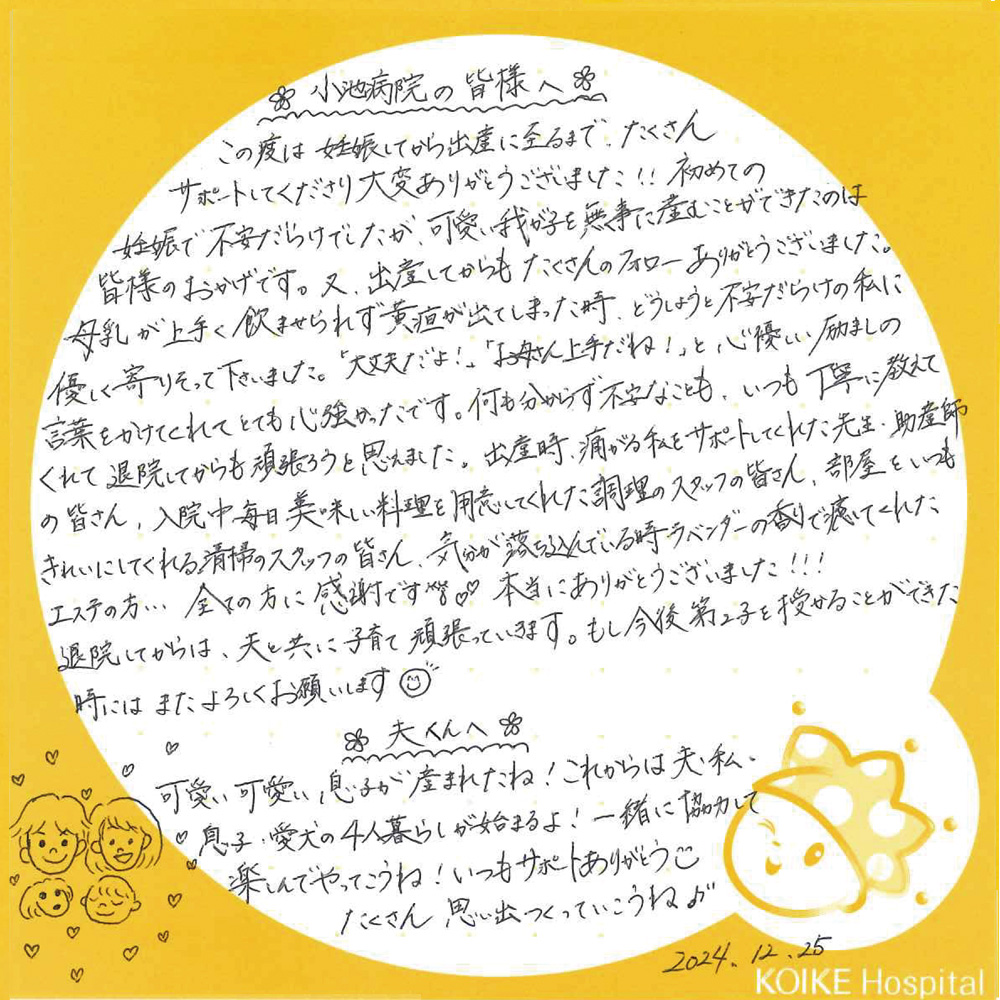 小池病院の皆様へ
この度は妊娠してから出産に至るまで、たくさん
サポートしてくださり大変ありがとうございました!! 初めての
妊娠で不安だらけでしたが、可愛い我が子を無事に産むことができたのは
皆様のおかげです。又、出産してからもたくさんのフォローありがとうございました。
母乳が上手く飲ませられず黄疸が出てしまった時、どうしようと不安だらけの私に
優しく寄りそって下さいました。「大丈夫だよ!」「お母さん上手だね!」と、心優しい励ましの
言葉をかけてくれてとても心強かったです。何も分からず不安なことも、いつも丁寧に教えて
くれて退院してからも頑張ろうと思えました。出産時、痛がる私をサポートしてくれた先生・助産師
の皆さん、入院中毎日美味しい料理を用意してくれた調理のスタッフの皆さん、部屋をいつも
きれいにしてくれる清掃のスタッフの皆さん、気分が落ち込んでいる時ラベンダーの香りで癒してくれた
エステの方… 全ての方に感謝です♡♡ 本当にありがとうございました!!!
退院してからは、夫と共に子育て頑張っていきます。もし今後第2子を授かることができた
時にはまたよろしくお願いします
夫くんへ
可愛い可愛い息子が産まれたね!これからは夫・私・
息子・愛犬の4人暮らしが始まるよ!一緒に協力して
楽しんでやってこうね!いつもサポートありがとう
たくさん思い出つくっていこうね♪
2024.12.25
KOIKE Hospital